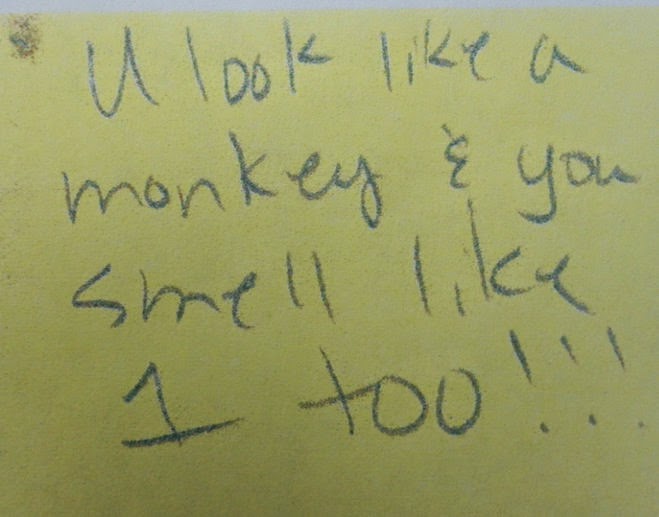 U look like a
monkey & you
smell like
1 too!!!